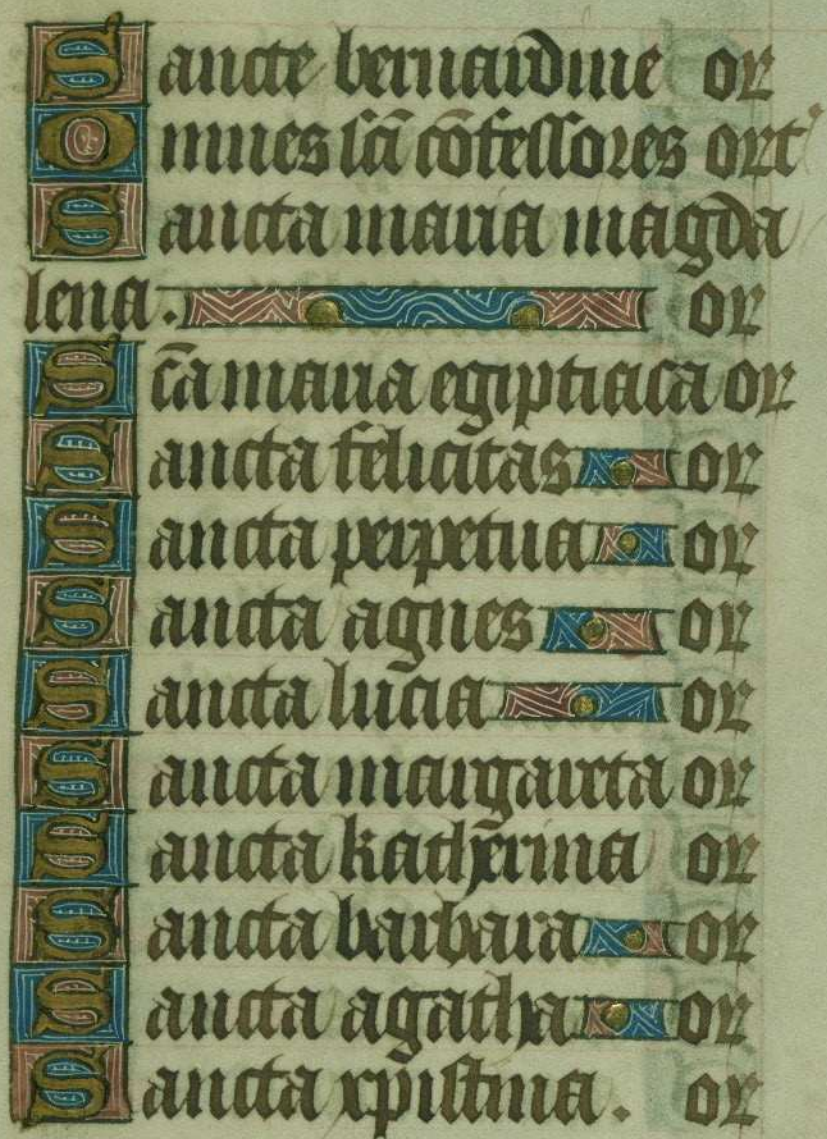 Sancte bernardine or
Omnes sc̄i cōfessores ort
Sancta maria magda
lena. or
Sc̄a maria egiptiaca or
Sancta felicitas or
Sancta perpetua or
Sancta agnes or
Sancta lucia or
Sancta margareta or
Sancta katherina or
Sancta barbara or
Sancta agatha or
Sancta xpistina. or